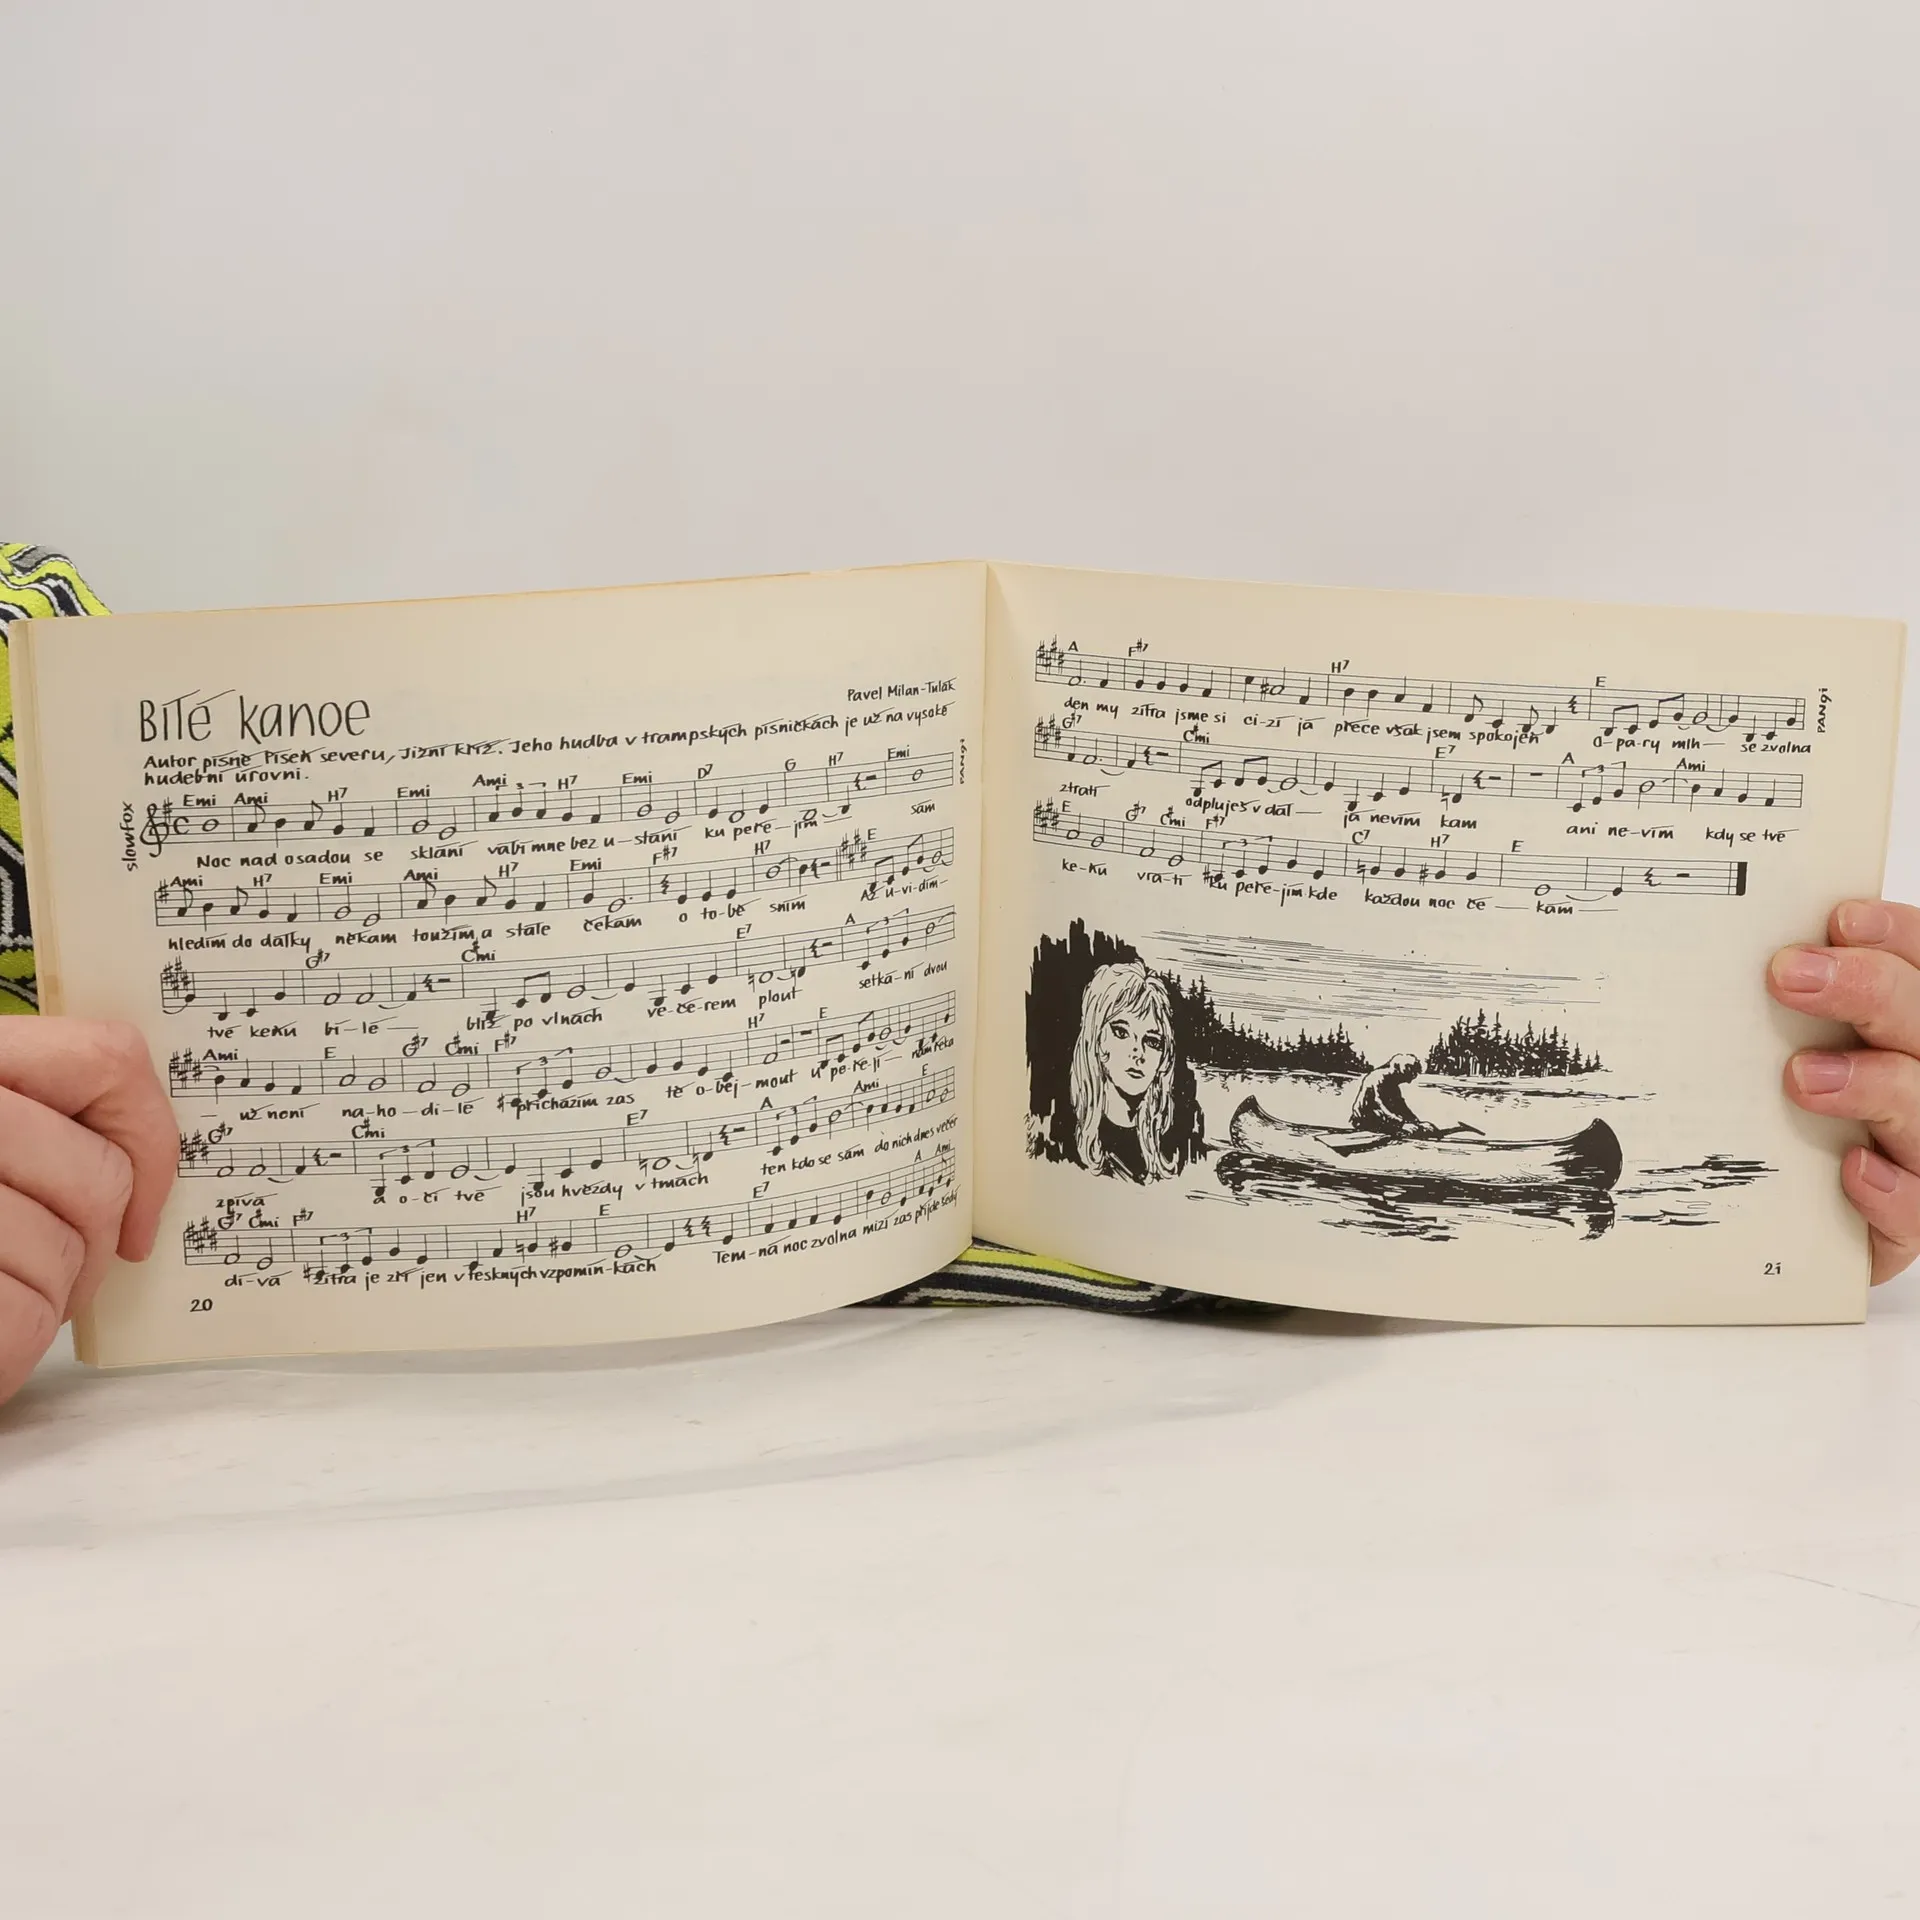 Bílé kanoe
Pavel Milan-Tulák
Autor písně Píseň severu, Jižní kříž. Jeho hudba v trampských písničkách je už na vysoké
hudební úrovni.
slowfox
Emi Ami H7 Emi Ami 3 H7 Emi D7 G H7 Emi
Noc nad osadou se sklání vábí mne bez u-stání ku peře-jím sám
PANgi
Ami H7 Emi Ami H7 Emi F#7 H7 E
hledím do dálky někam toužím a stále čekám o to-bě sním Až u-vi-dím-
G#7 C#mi E7 A 3
tvé kenu bí-lé blíž po vlnách ve-če-rem plout setká-ní dvou
Ami E G#7 C#mi F#7 3 H7 E
už není na-ho-di-lé přicházím zas tě o-bej-mout u pe-ře-jí nám řeka
G#7 C#mi 3 E7 A 3 Ami E
zpívá a o-či tvé jsou hvězdy v tmách ten kdo se sám do nich dnes večer
G#7 C#mi F#7 3 H7 E E7 A Ami
dí-vá zítra je zří jen v teskných vzpomín-kách Tem-ná noc zvolna mizí zas přijde šedý
20
A F#7 H7 E
den my zítra jsme si ci-zí já přece však jsem spokojen o-pa-ry mlh se zvolna
PANgi
G#7 C#mi E7 A 3 Ami
ztratí odpluješ v dál já nevím kam ani ne-vím kdy se tvé
E G#7 C#mi F#7 3 C7 H7 E
ke-nu vrá-tí ku peře-jím kde každou noc če-kám
21